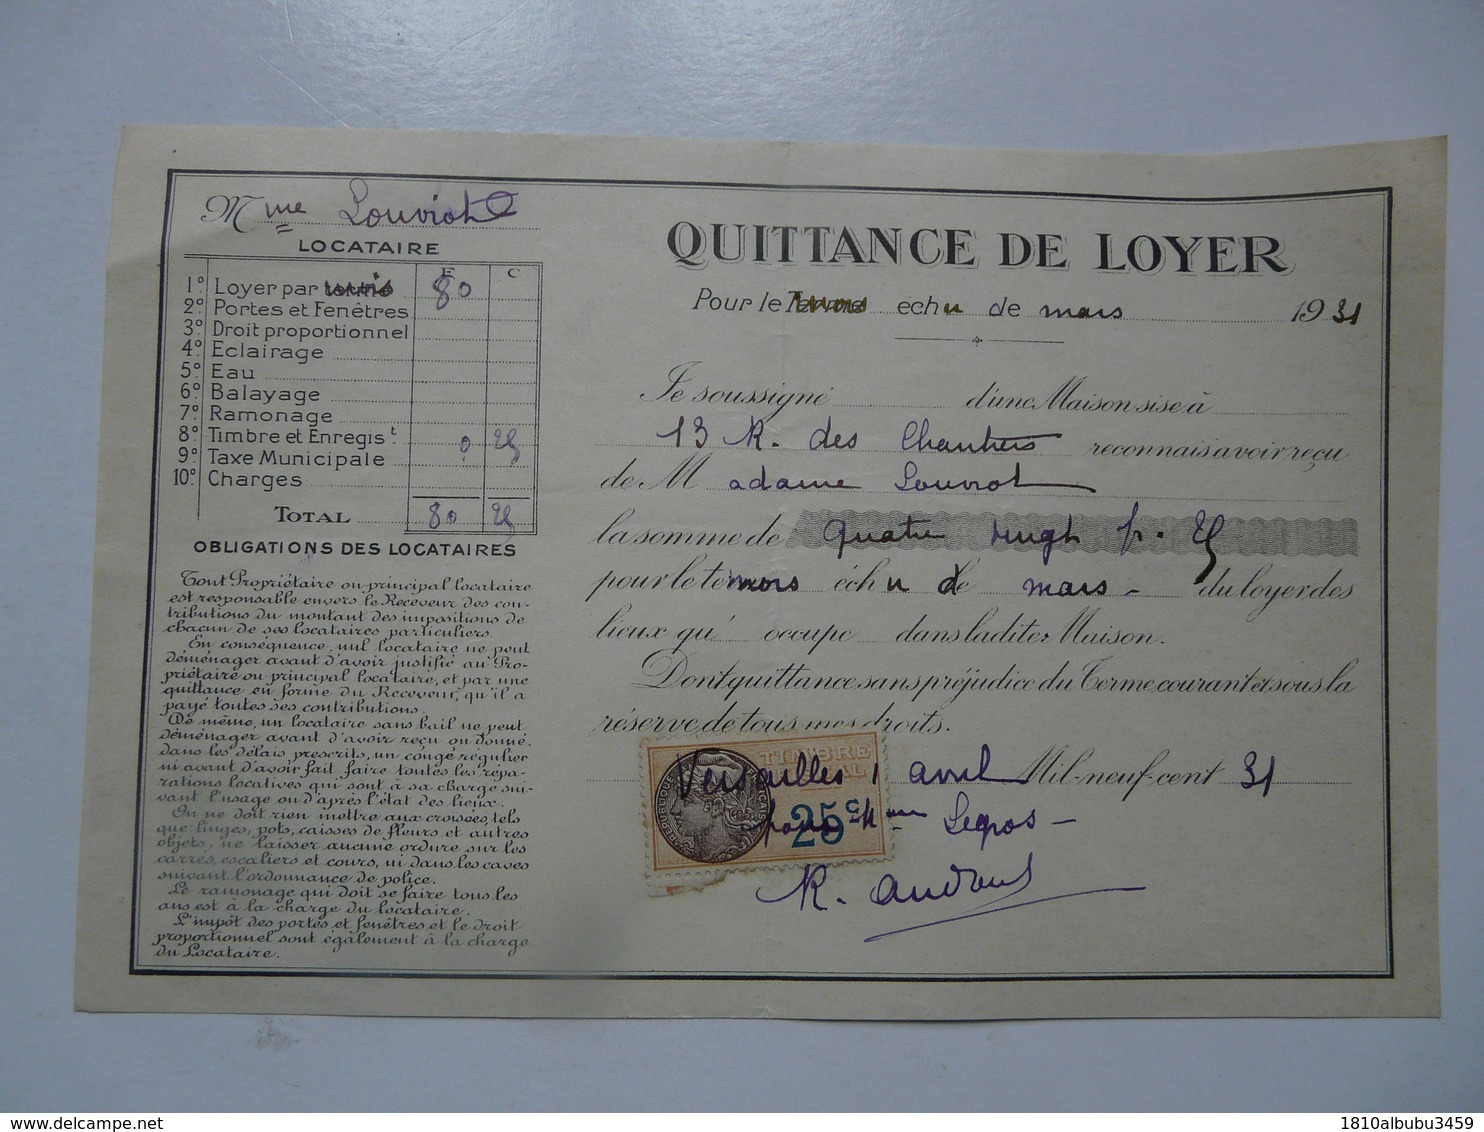 Mme Louviot
LOCATAIRE
F C
1º Loyer par mois 80
2º Portes et Fenêtres
3º Droit proportionnel
4º Eclairage
5º Eau
6º Balayage
7º Ramonage
8º Timbre et Enregist. 0 25
9º Taxe Municipale
10º Charges
TOTAL 80 25
OBLIGATIONS DES LOCATAIRES
Tout Propriétaire ou principal locataire
est responsable envers le Receveur des con-
tributions du montant des impositions de
chacun de ses locataires particuliers.
En conséquence, nul locataire ne peut
déménager avant d'avoir justifié au Pro-
priétaire ou principal locataire, et par une
quittance en forme du Receveur, qu'il a
payé toutes ses contributions.
De même, un locataire sans bail ne peut
déménager avant d'avoir reçu ou donné,
dans les délais prescrits, un congé régulier
ni avant d'avoir fait faire toutes les répa-
rations locatives qui sont à sa charge sui-
vant l'usage ou d'après l'état des lieux.
On ne doit rien mettre aux croisées, tels
que linges, pots, caisses de fleurs et autres
objets, ne laisser aucune ordure sur les
carrés, escaliers et cours, ni dans les caves
suivant l'ordonnance de police.
Le ramonage qui doit se faire tous les
ans est à la charge du locataire.
L'impôt des portes et fenêtres et le droit
proportionnel sont également à la charge
du Locataire.
QUITTANCE DE LOYER
Pour le mois echu de mars 1931
Je soussigné d'une Maison sise à
13 R. des Chantiers reconnais avoir reçu
de Madame Louviot
la somme de quatre vingt fr. 25
pour le mois échu de mars - du loyer des
lieux qu' occupe dans ladite Maison.
Dont quittance sans préjudice du Terme courant et sous la
réserve de tous mes droits.
TIMBRE
Versailles 1 avril Mil-neuf-cent 31
25c
pour Mme Legros -
R.
1810albubu3459